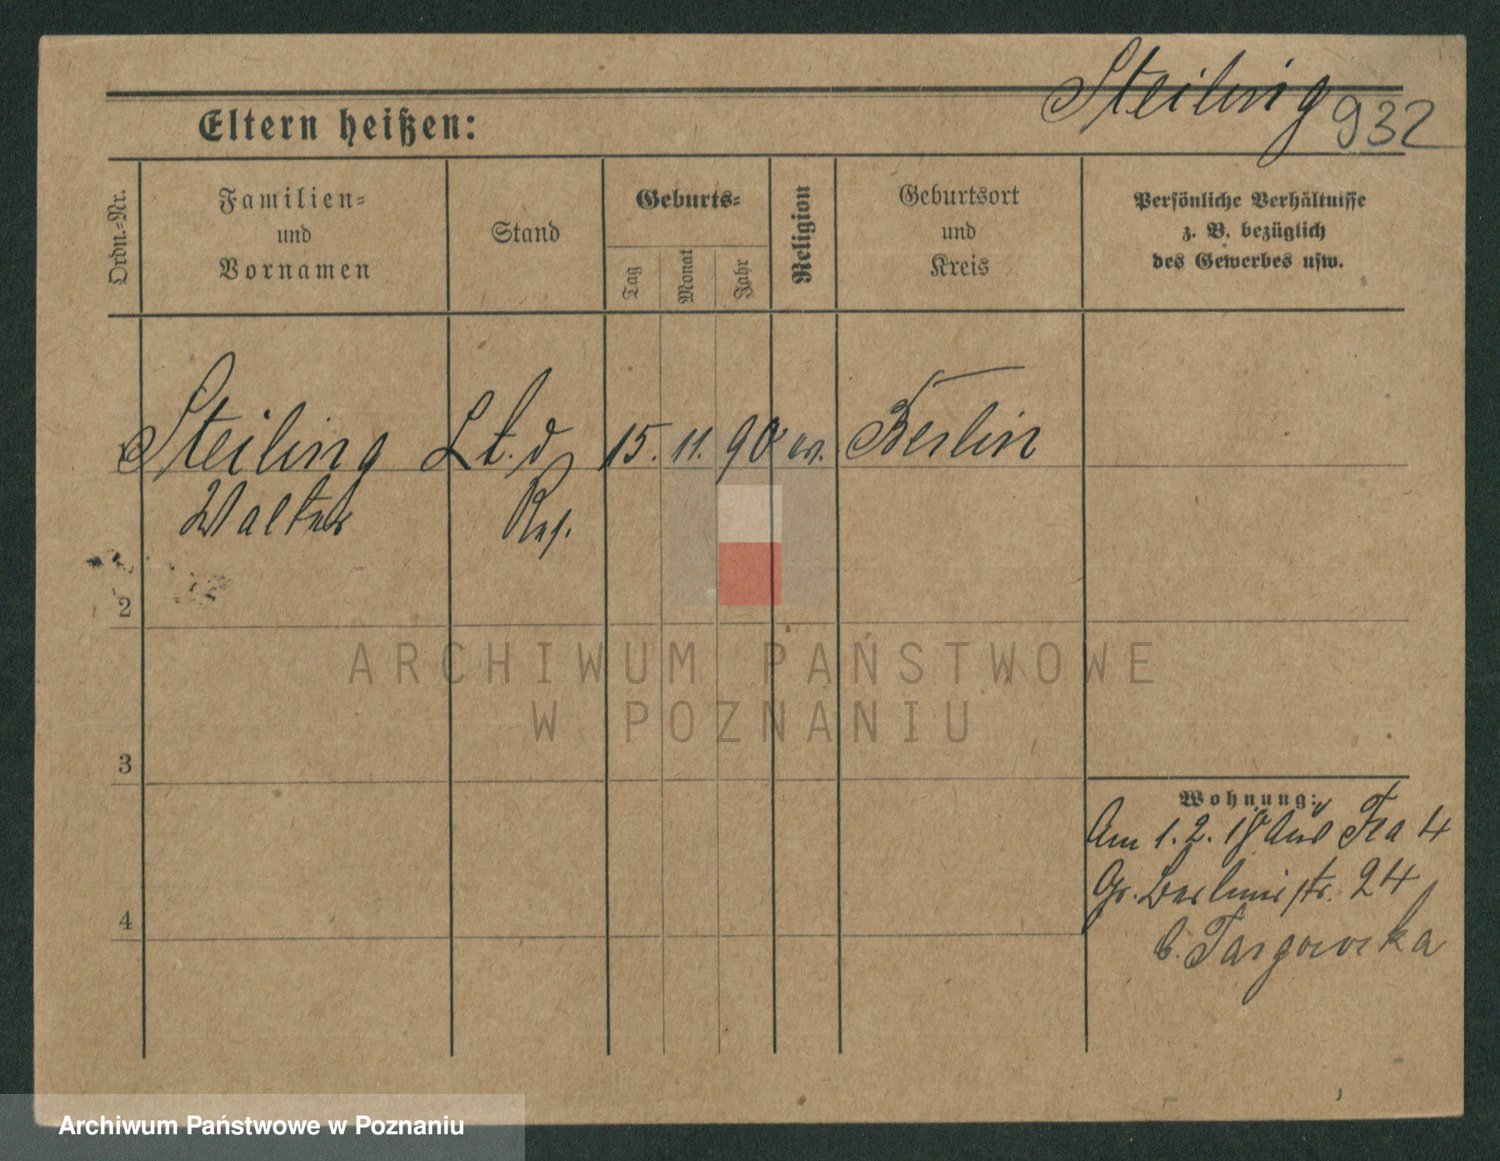 Steiling 932
Eltern heißen:
Ordn.-Nr.
Familien-
und
Vornamen
Stand
Geburts-
Tag
Monat
Jahr
Religion
Geburtsort
und
Kreis
Persönliche Verhältnisse
z. B. bezüglich
des Gewerbes usw.
Steiling Lt. d 15. 11. 90 ev. Berlin
Walter Res.
2
3
4
Wohnung:
Am 1. 2. 18 aus Fra 4
Gr. Berlinerstr. 24
b. Targowska
ARCHIWUM PAŃSTWOWE
W POZNANIU
Archiwum Państwowe w Poznaniu